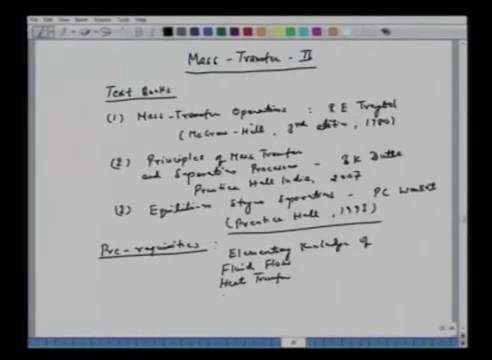 Mass - Transfer - II
Text Books
(1) Mass-Transfer Operations : R E Treybal
(McGraw-Hill, 3rd edition, 1980)
(2) Principles of Mass Transfer
and Separation Processes - B K Dutta
Prentice Hall India, 2007
(3) Equilibrium Stages Separations - PC Wankat
(Prentice Hall, 1993)
Pre-requisites : Elementary Knowledge of
Fluid Flow
Heat Transfer